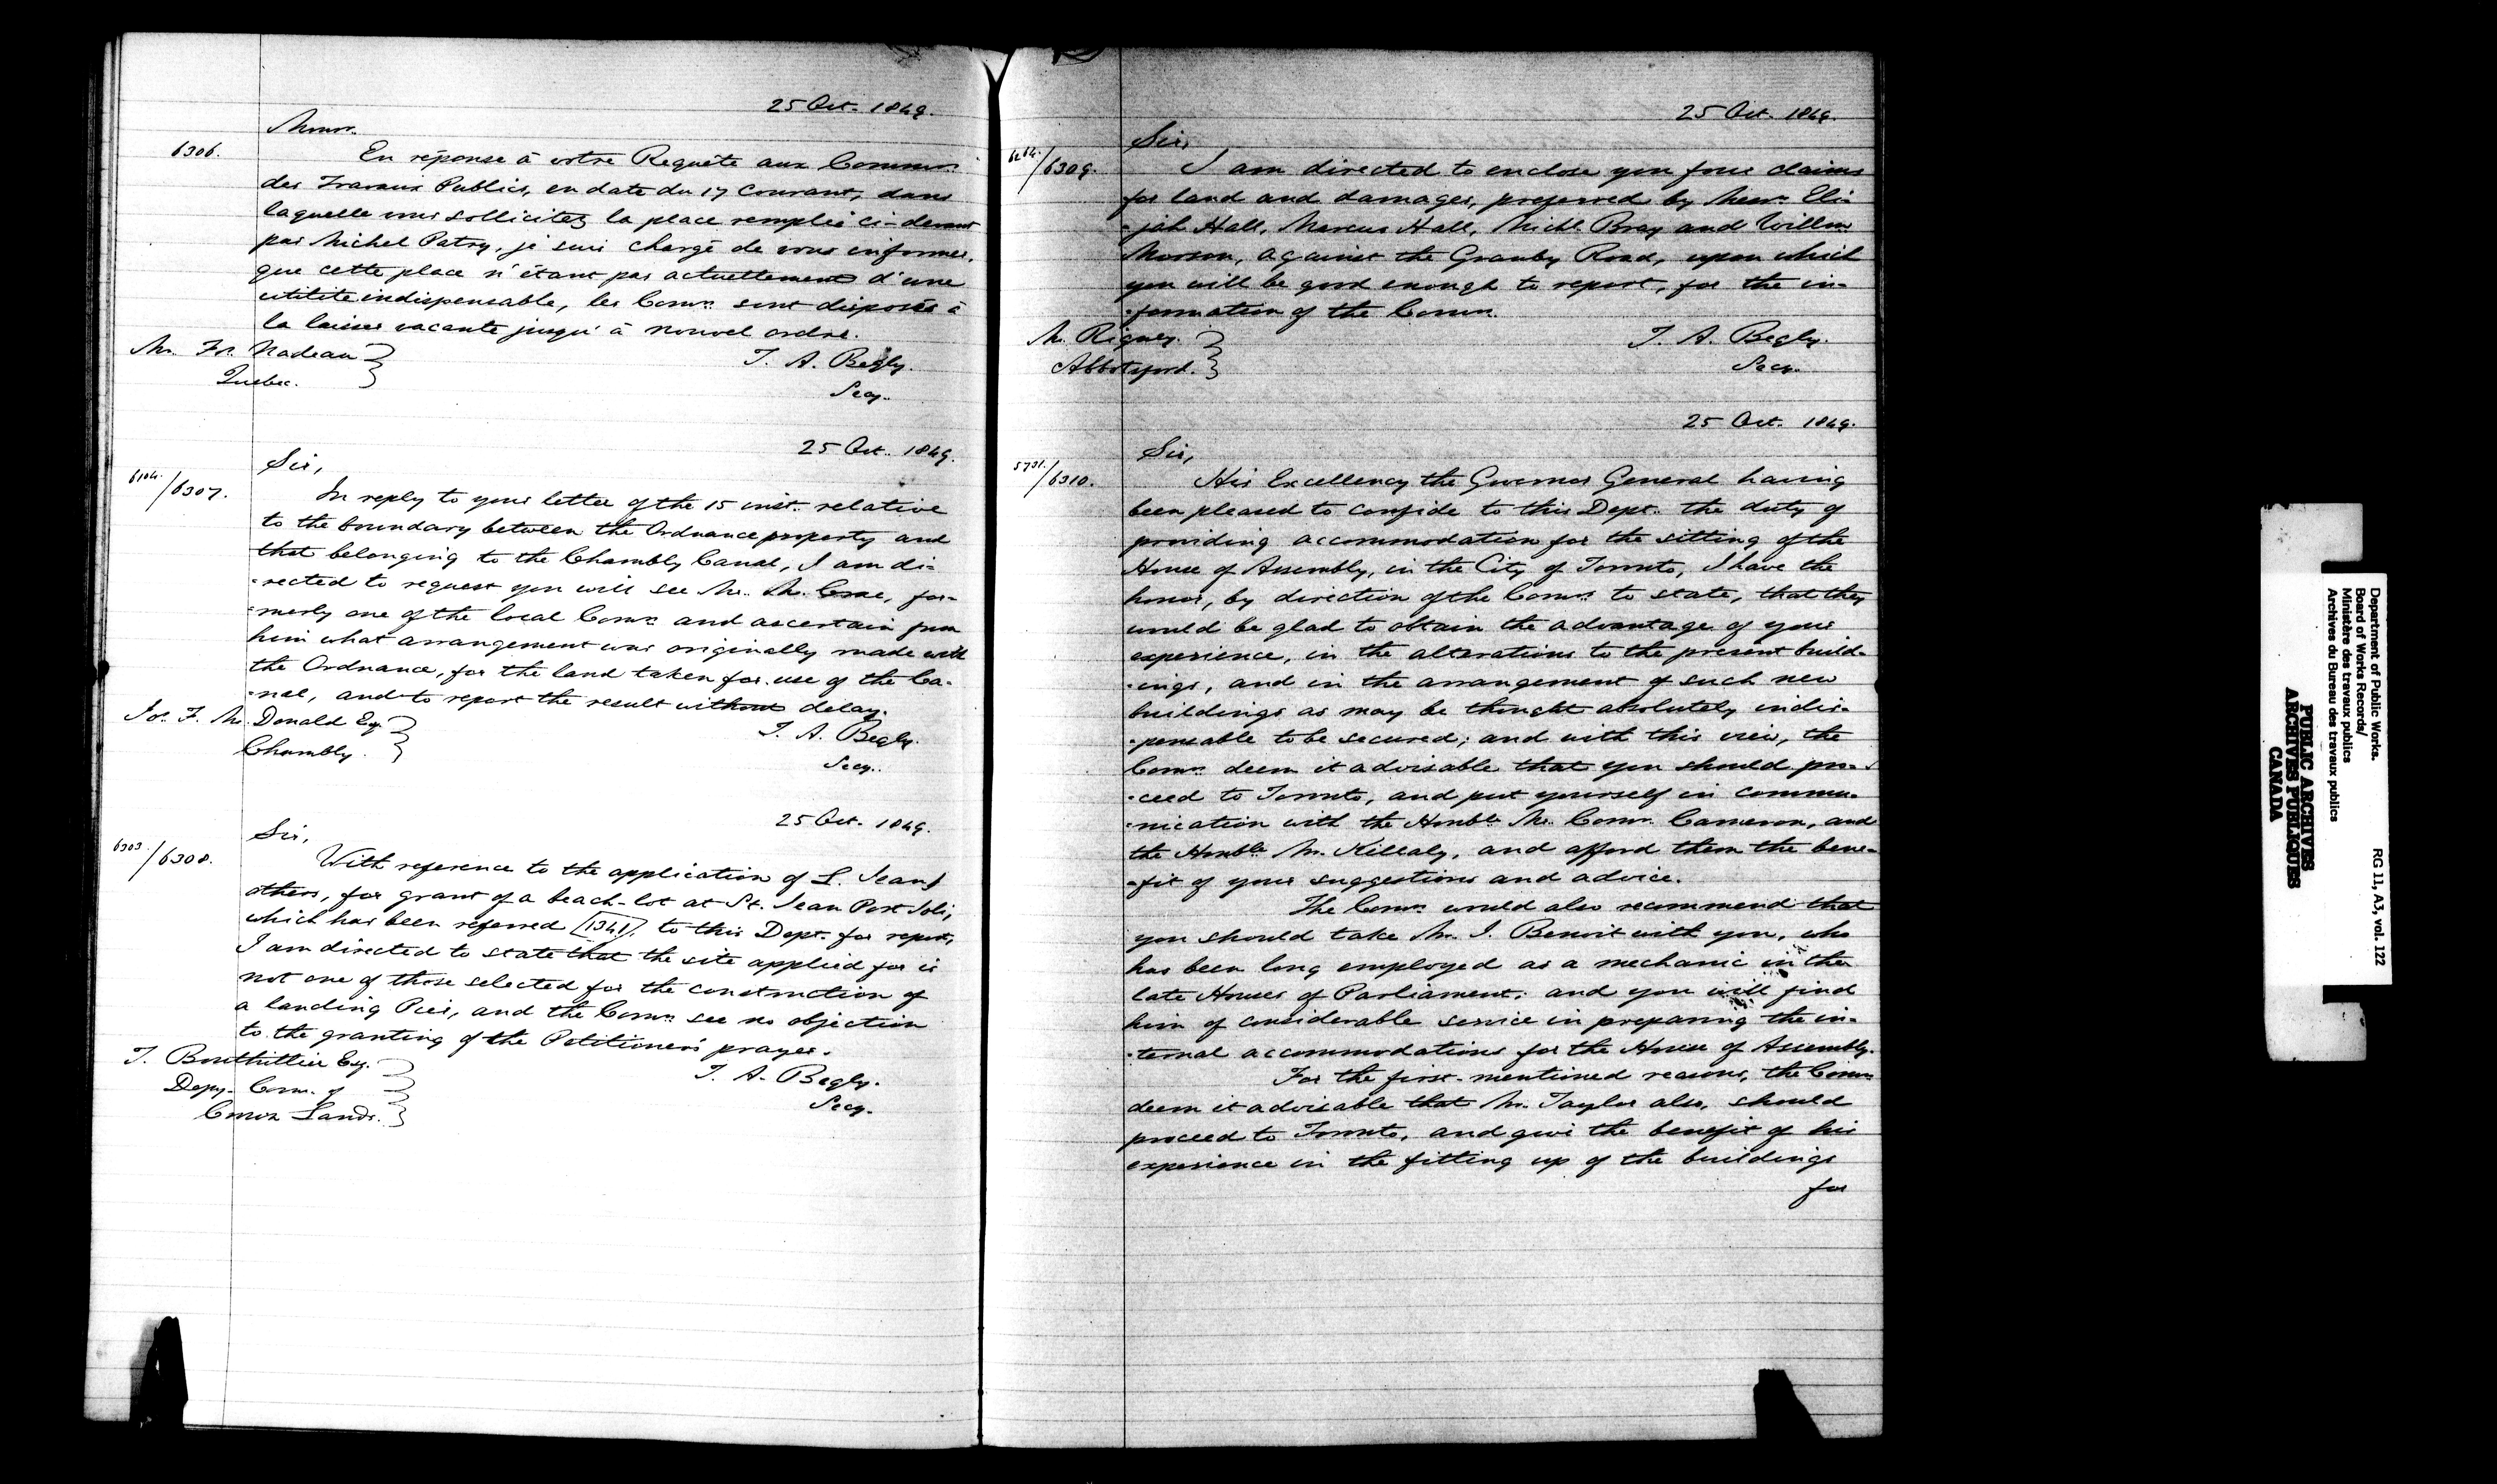 25 Oct. 1849.
Monsr.
6306.
En réponse à votre Requête aux Commrs.
des Travaux Publics, en date du 17 Courant, dans
laquelle vous sollicitez la place remplie ci-devant
par Michel Patry, je suis chargé de vous informer,
que cette place n'étant pas actuellement d'une
utilité indispensable, les Comrs. sont disposés à
la laisser vacante jusqu'à nouvel ordre.
Mr. Fr. Nadeau
Quebec.
T. A. Begly.
Secy.
25 Oct. 1849.
Sir,
6104./6307.
In reply to your letter of the 15 inst. relative
to the boundary between the Ordnance property and
that belonging to the Chambly Canal, I am di-
-rected to request you will see Mr. McCrae, for-
-merly one of the local Comrs. and ascertain from
him what arrangement was originally made with
the Ordnance, for the land taken for use of the Ca-
-nal, and to report the result without delay.
Jos. F. McDonald Esq.
Chambly.
T. A. Begly.
Secy.
25 Oct. 1849.
Sir,
6303./6308.
With reference to the application of L. Jean &
others, for grant of a beach-lot at St. Jean Port Joli,
which has been referred [1341], to this Dept. for report,
I am directed to state that the site applied for is
not one of those selected for the construction of
a landing Pier, and the Comrs. see no objection
to the granting of the Petitioners' prayer.
T. Bouthillier Esq.
Depy. Comr. of
Crown Lands.
T. A. Begly.
Secy.
25 Oct. 1849.
Sir,
6264./6309.
I am directed to enclose you four claims
for land and damages, preferred by Messrs. Eli-
-jah Hall, Marcus Hall, Michl. Bray and Willm
Morson, against the Granby Road, upon which
you will be good enough to report, for the in-
-formation of the Comrs.
M. Rigney.
Abbotsford.
T. A. Begly.
Secy.
25 Oct. 1849.
Sir,
5731./6310.
His Excellency the Governor General having
been pleased to confide to this Dept. the duty of
providing accommodation for the sitting of the
House of Assembly, in the City of Toronto, I have the
honor, by direction of the Comrs. to state, that they
would be glad to obtain the advantage of your
experience, in the alterations to the present build-
-ings, and in the arrangement of such new
buildings as may be thought absolutely indis-
-pensable to be secured; and with this view, the
Comrs. deem it advisable that you should pro-
-ceed to Toronto, and put yourself in commu-
-nication with the Honble. Mr. Comr. Cameron, and
the Honble. Mr. Killaly, and afford them the bene-
-fit of your suggestions and advice.
The Comrs. would also recommend that
you should take Mr. J. Benoit with you, who
has been long employed as a mechanic in the
late Houses of Parliament; and you will find
him of considerable service in preparing the in-
-ternal accommodations for the House of Assembly.
For the first-mentioned reasons, the Comrs.
deem it advisable that Mr. Taylor also, should
proceed to Toronto, and give the benefit of his
experience in the fitting up of the buildings
for
Department of Public Works.
Board of Works Records/
Ministère des travaux publics
Archives du Bureau des travaux publics
RG 11, A3, vol. 122
PUBLIC ARCHIVES
ARCHIVES PUBLIQUES
CANADA